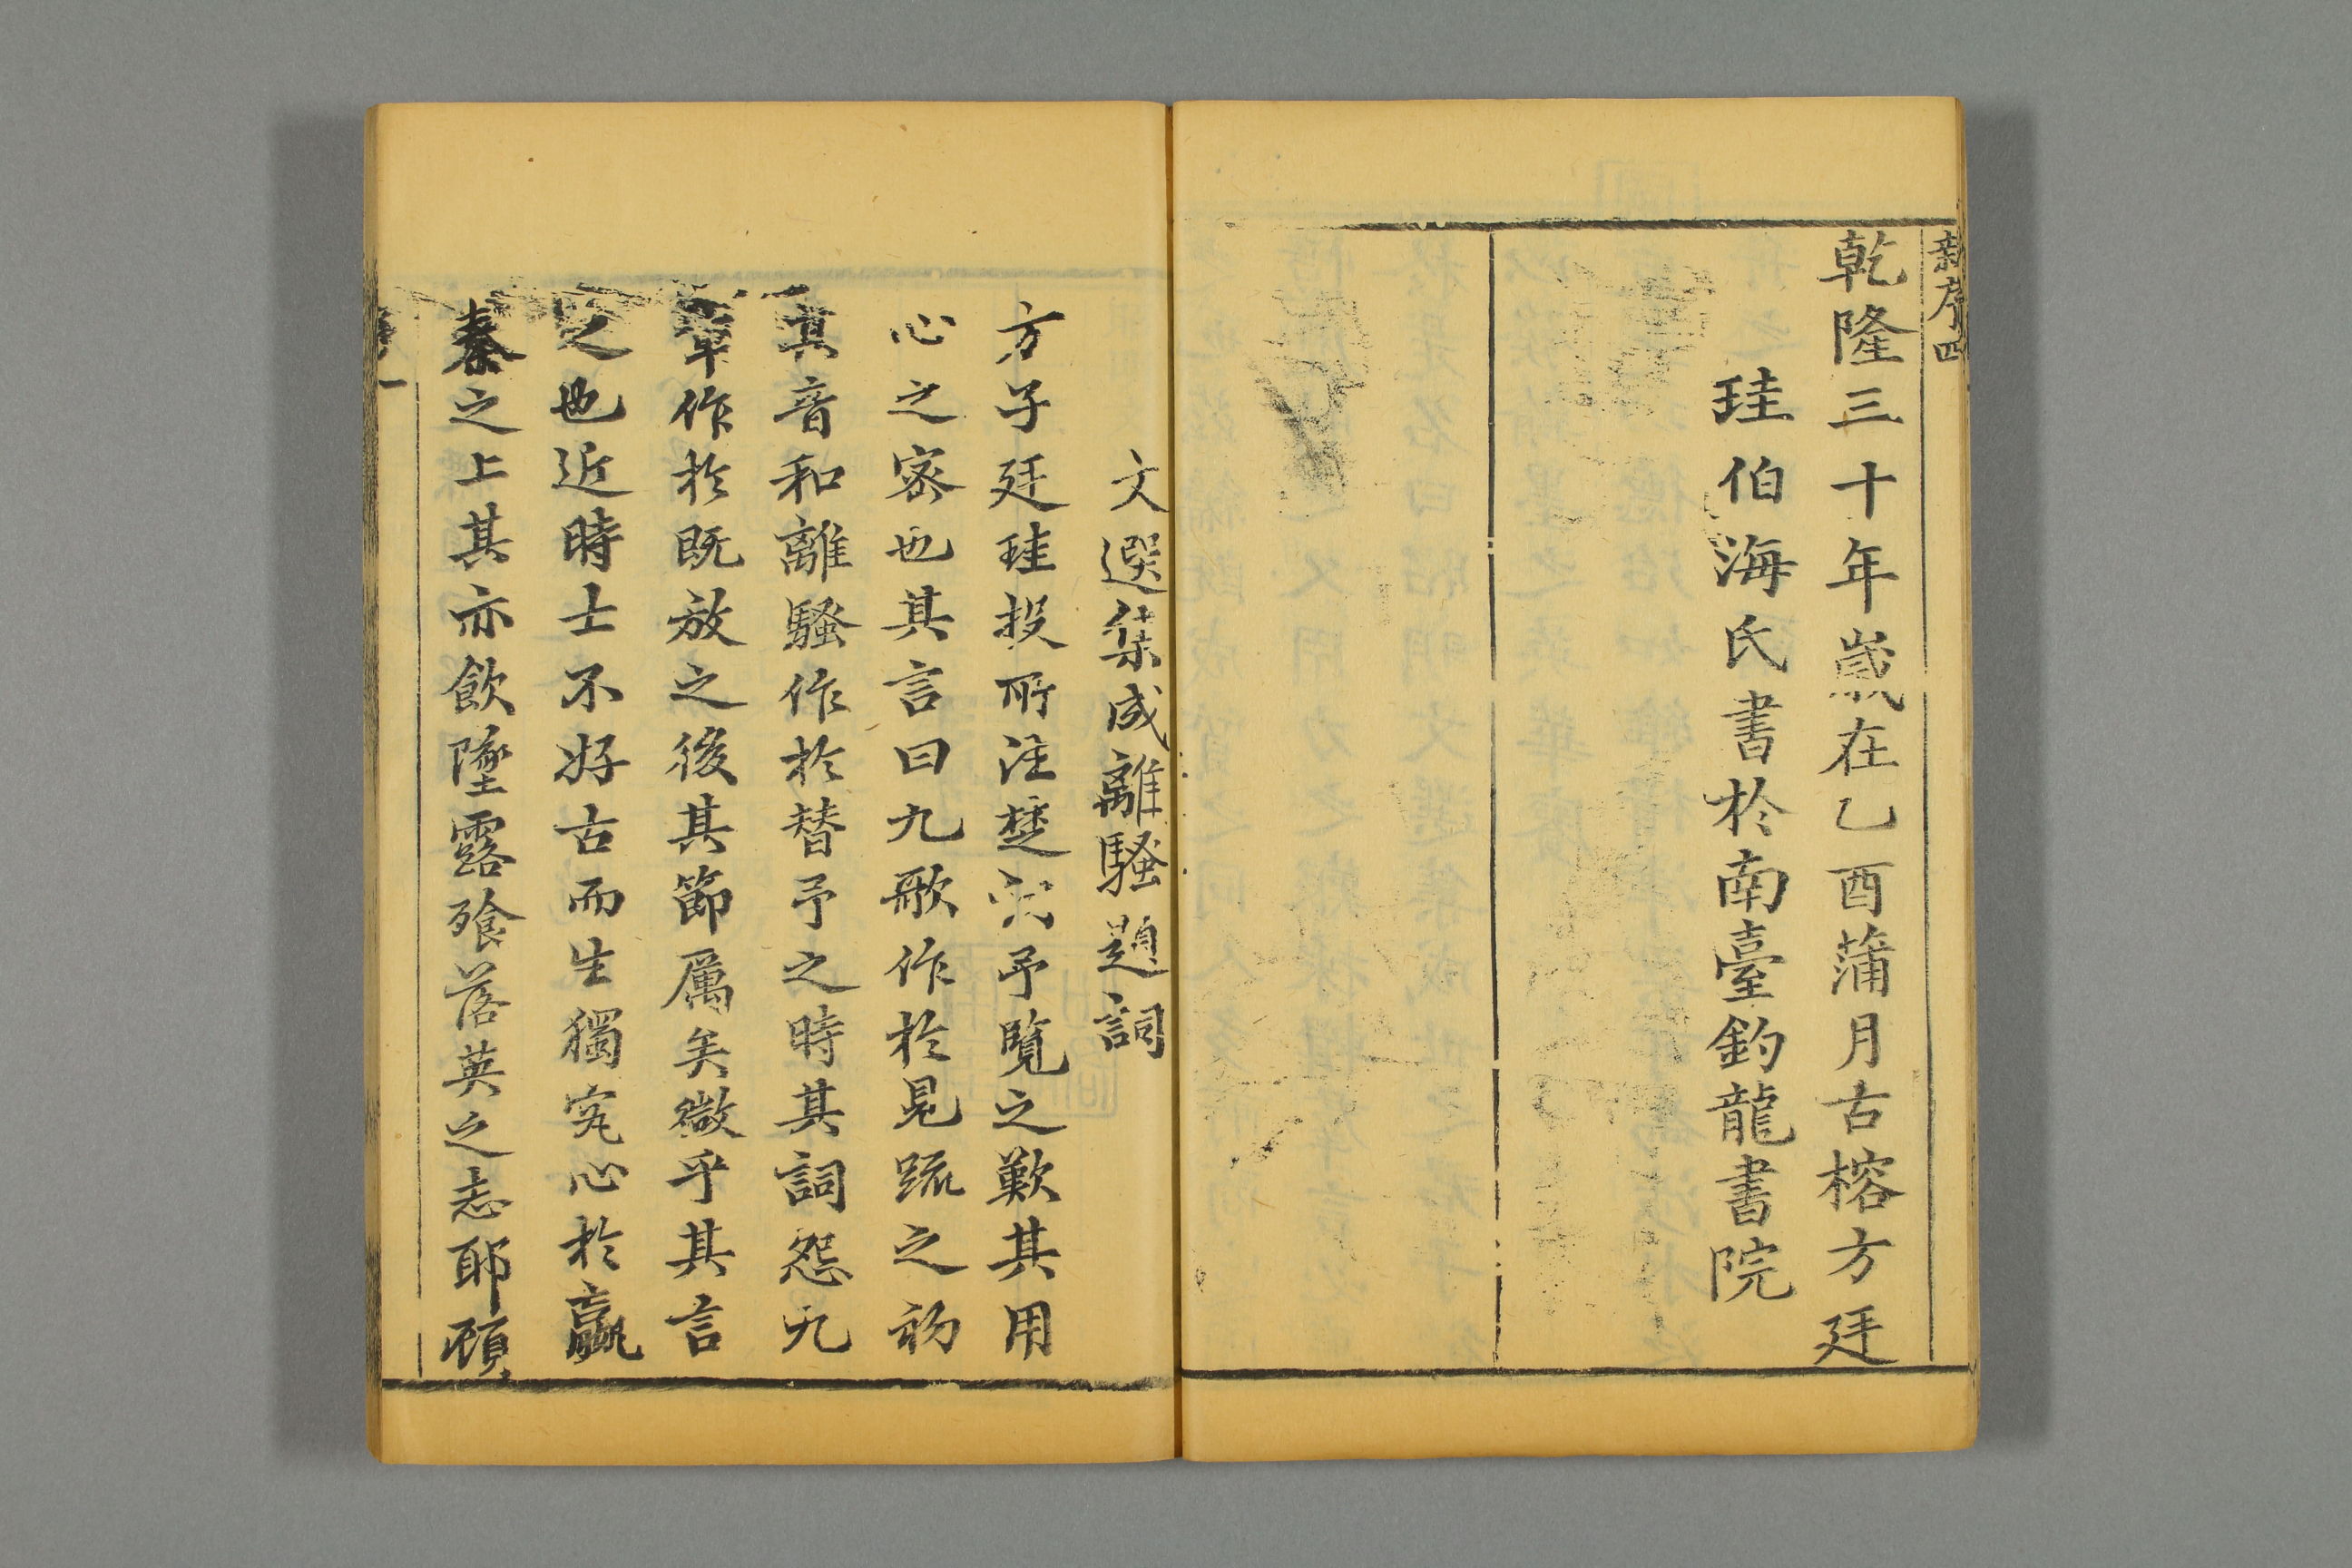 新序 四
乾隆三十年歲在乙酉蒲月古榕方廷
珪伯海氏書於南臺釣龍書院
文選集成離騷題詞
方子廷珪投所注楚 予覽之歎其用
心之密也其言曰九歌作於見疏之初
其音和離騷作於替予之時其詞怨九
章作於既放之後其節厲矣微乎其言
之也近時士不好古而生獨究心於嬴
秦之上其亦飲墜露飱落英之志耶頋